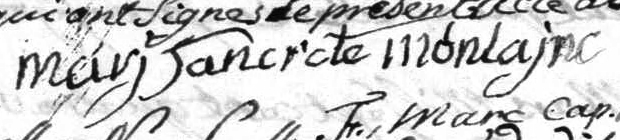 qui ont signes le present acte a
marj Sancrete montajne
F. Marc Cap.